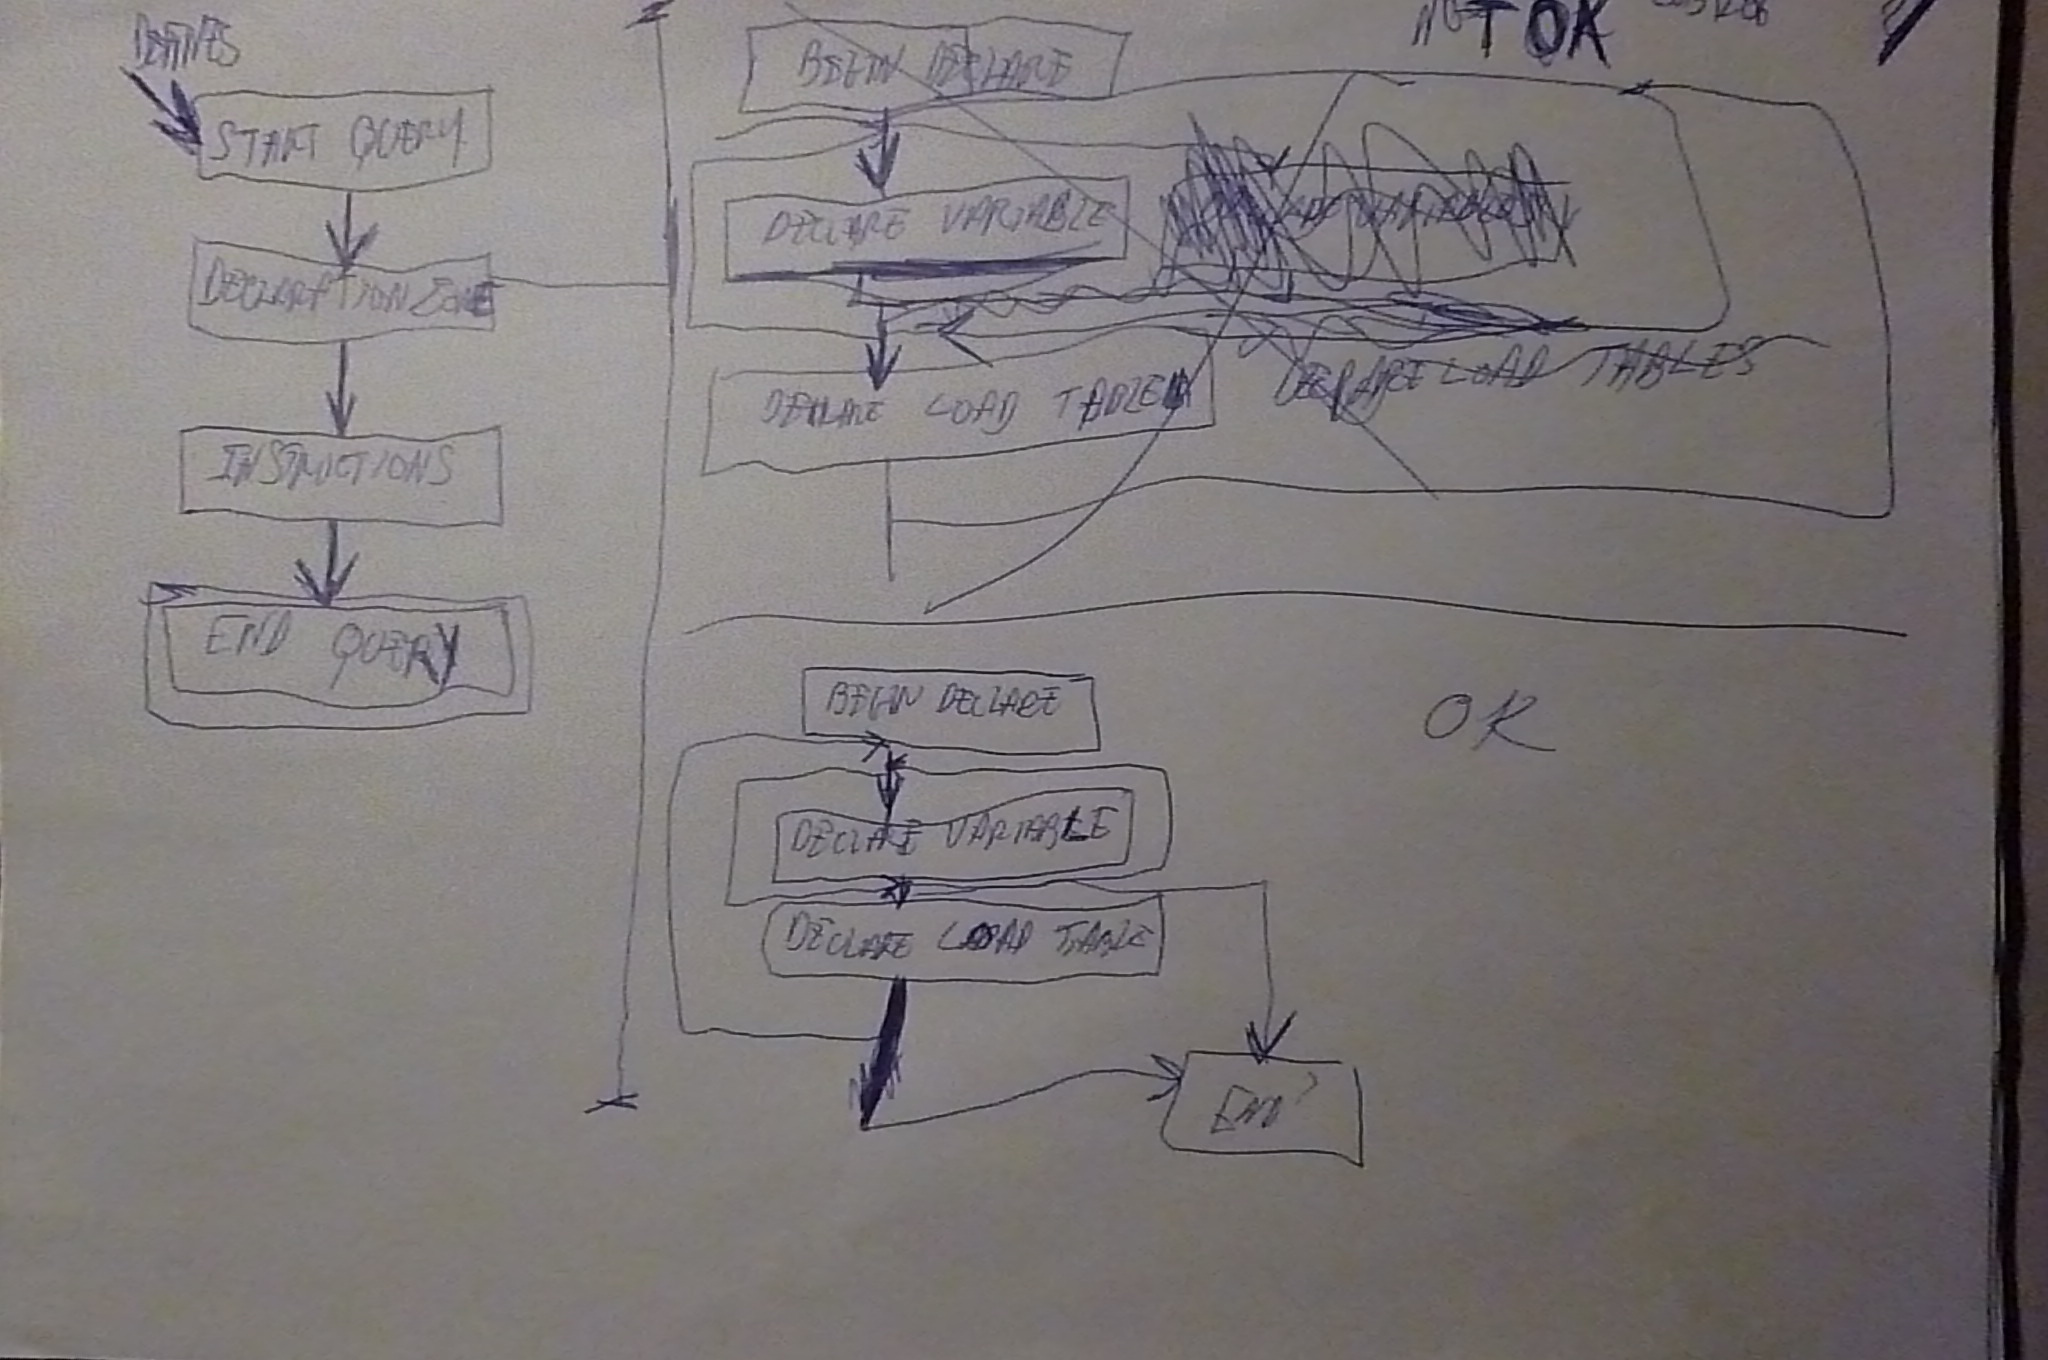 DEFINES
START QUERY
DECLARATION ZONE
INSTRUCTIONS
END QUERY
TOK
BEGIN DECLARE
DECLARE VARIABLE
DECLARE LOAD TABLE
DECLARE LOAD TABLES
OK
BEGIN DECLARE
DECLARE VARIABLE
DECLARE LOAD TABLE
END